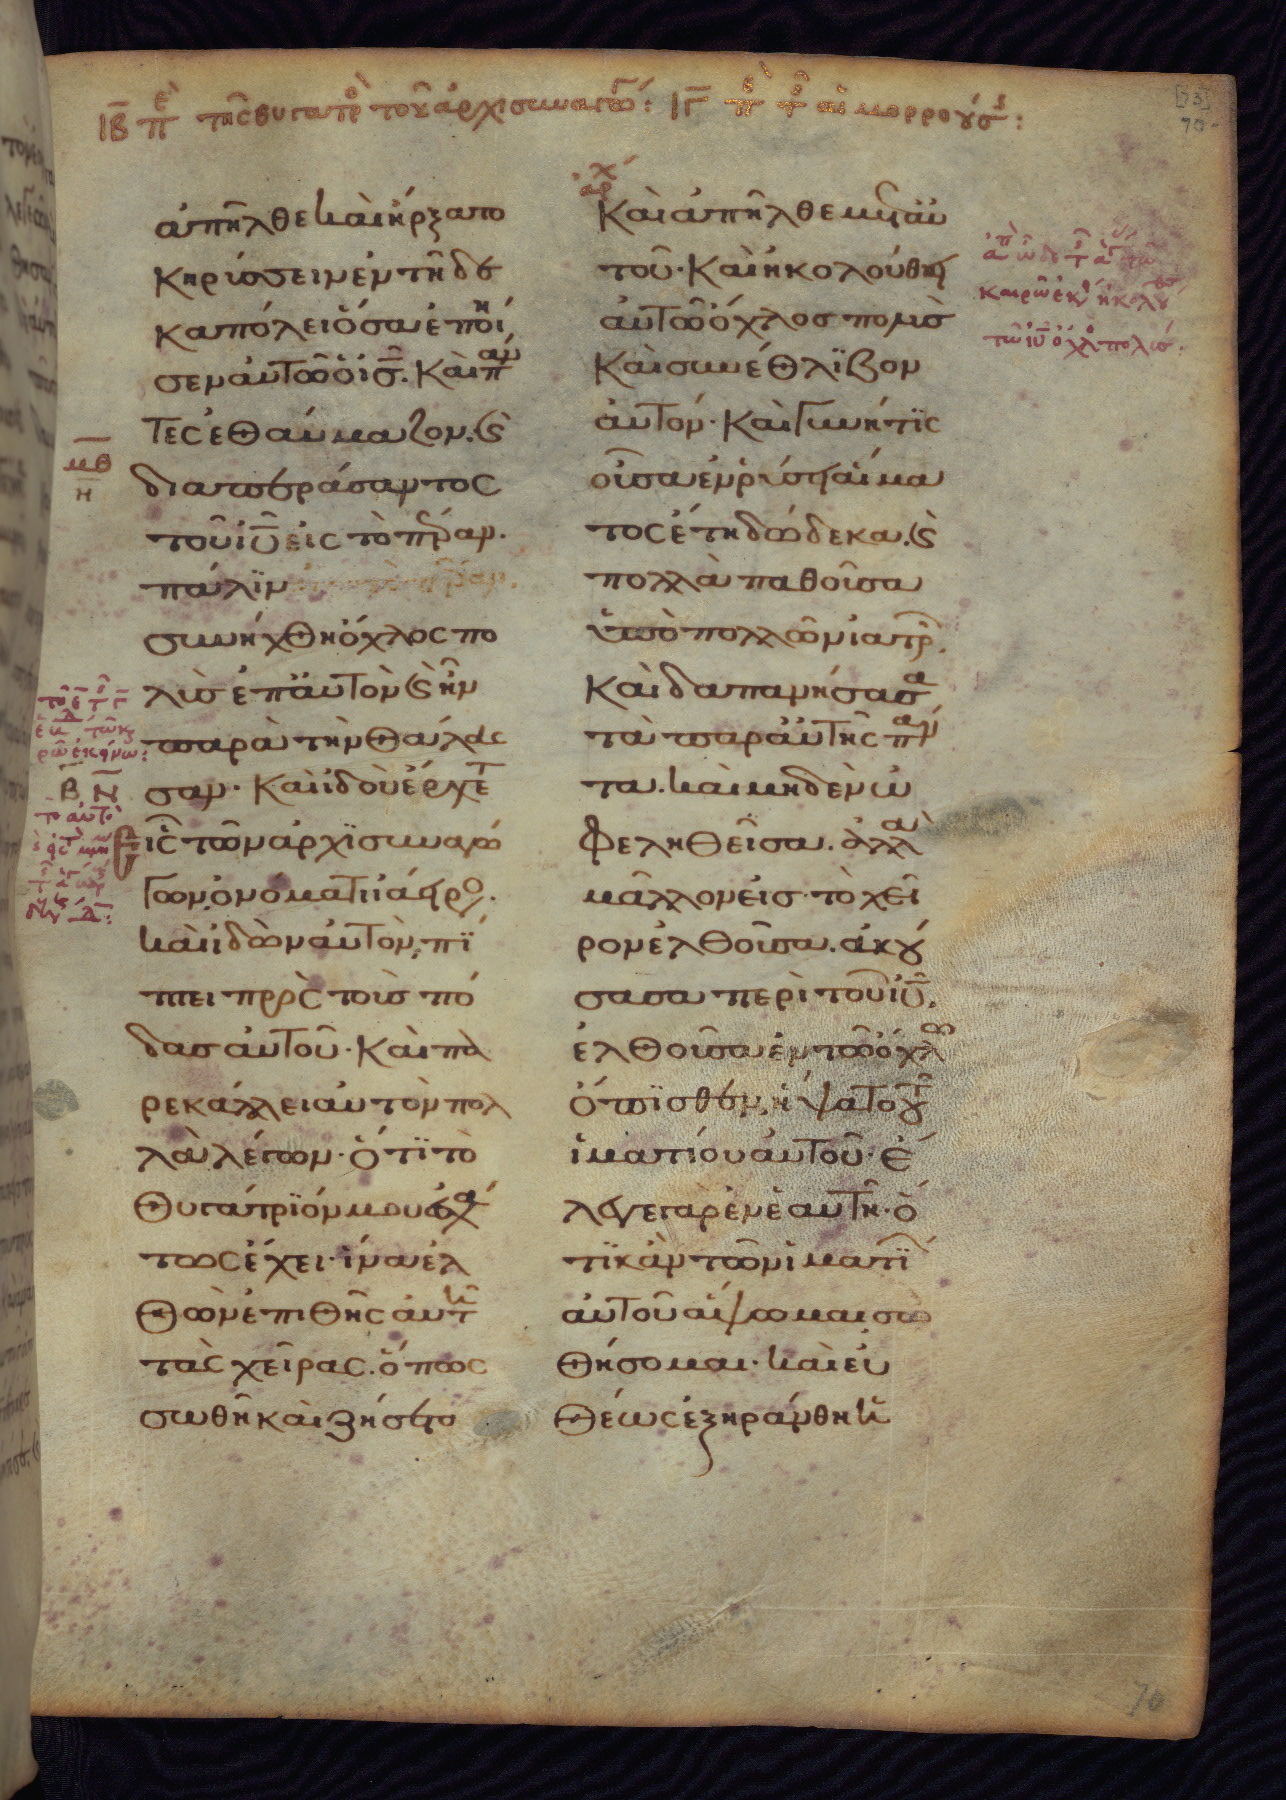 ΙΒ περὶ τῆς θυγατρὸ τοῦ ἀρχισυναγώ: ΙΓ π τ αἱμορρούσ:
[73]
70
ἀπῆλθε καὶ ἤρξατο
κηρύσσειν ἐν τῇ δε
καπόλει ὅσα ἐποίη
σεν αὐτῶ ὁ ἰς. Καὶ πάν
τες ἐθαύμαζον. ϗ
διαπεράσαντος
τοῦ ἰυ εἰς τὸ πέραν.
πάλϊν
συνήχθη ὄχλος πο
λὺσ ἐπ αὐτὸν ϗ ἦν
παρὰ τὴν θάλασ
σαν. Καὶ ἰδοὺ ἔρχετ
εἷς τῶν ἀρχϊσυναγώ
γων, ὀνόματι ἰάειρο.
καὶ ἰδὼν αὐτὸν, πί
πτει πρὸς τοὺσ πό
δασ αὐτοῦ. Καὶ πα
ρεκάλλει αὐτὸν πολ
λὰ λέγων. ὅτϊ τὸ
θυγάτρϊόν μου ἐσχά
τως ἔχει. ἵνα ἐλ
θὼν ἐπιθῆς αὐτῆ
τὰς χεῖρας. ὅπως
σωθῆ καὶ ζήσεται
μθ
η
Β Ν
το αὐτὸ
ἀρχ
Καὶ ἀπῆλθε μετ αὐ
τοῦ. Καὶ ἠκολούθει
αὐτῶ ὄχλοσ πολὺσ
Καὶ συνέθλϊβον
αὐτόν. Καὶ γυνή τϊς
οὖσα ἐν ῥύσει αἵμα
τος ἔτη δώδεκα. ϗ
πολλὰ παθοῦσα
ὑπὸ πολλῶν ἰατρ.
Καὶ δαπανήσασα
τὰ παρ αὐτῆς πάν
τα. καὶ μηδὲν ὠ
φεληθεῖσα. ἀλλὰ
μᾶλλον εἰσ τὸ χεῖ
ρον ἐλθοῦσα. ἀκού
σασα περὶ τοῦ ἰυ,
ἐλθοῦσα ἐν τῶ ὄχλω
ὄπϊσθεν, ἥψατο τοῦ
ἱματίου αὐτοῦ. ἔ
λεγε γὰρ ἐν ἑαυτῆ. ὅ
τϊ κἂν τῶν ἱματϊ
αὐτοῦ ἅψωμαι σω
θήσομαι. καὶ εὐ
θέως ἐξηράνθη ἡ
καιρῶ ἐκ ἠκολου
τῶ ἰυ ὄχλο πολύσ.
70